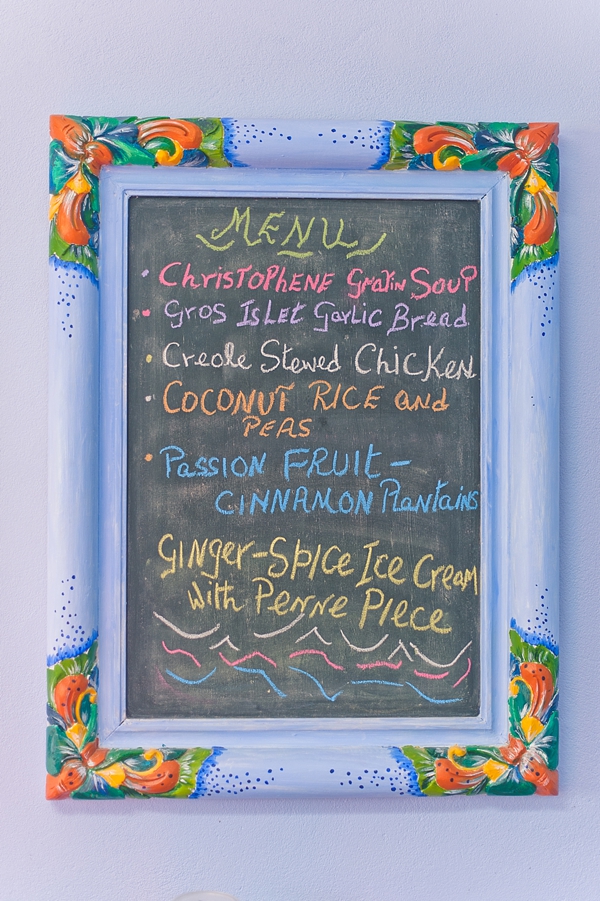 MENU
• ChrisTOPHENE Gratin Soup
• Gros IsLet Garlic Bread
• Creole Stewed Chicken
• COCONUT RICE and
PEAS
• Passion FRUIT -
CINNAMON Plantains
GiNger-Spice Ice Cream
with Penne Piece